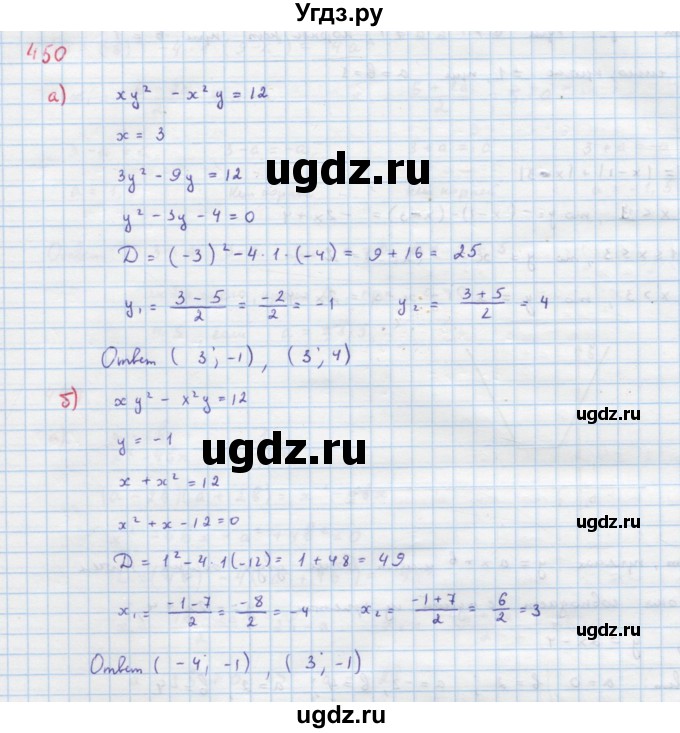 Угдз.ру
450
а) xy² - x²y = 12
x = 3
ugdz.ru
3y² - 9y = 12
y² - 3y - 4 = 0
D = (-3)² - 4·1·(-4) = 9 + 16 = 25
y₁ = (3 - 5)/2 = -2/2 = -1 y₂ = (3 + 5)/2 = 4
Ответ (3; -1), (3; 4)
б) xy² - x²y = 12
ugdz.ru
y = -1
ugdz.ru
x + x² = 12
x² + x - 12 = 0
ugdz.ru
D = 1² - 4·1(-12) = 1 + 48 = 49
x₁ = (-1 - 7)/2 = -8/2 = -4 x₂ = (-1 + 7)/2 = 6/2 = 3
ugdz.ru
Ответ (-4; -1), (3; -1)
ugdz.ru